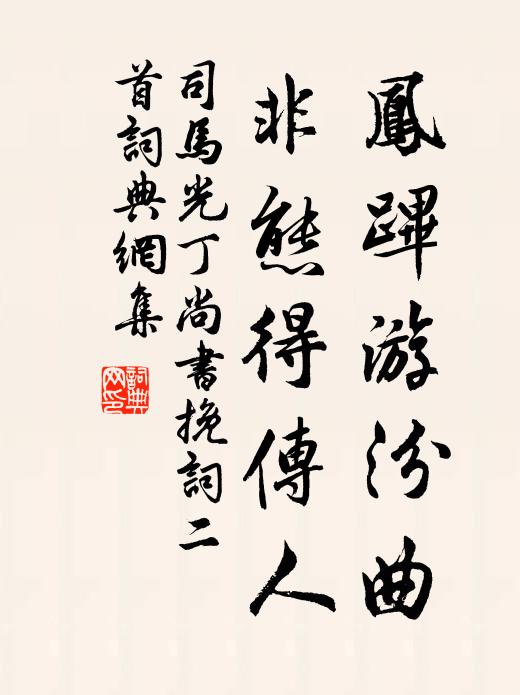 鳳蹕游汾曲
非熊得傳人
司馬光丁尚書挽詞二
首詞典網集
詞典
网印